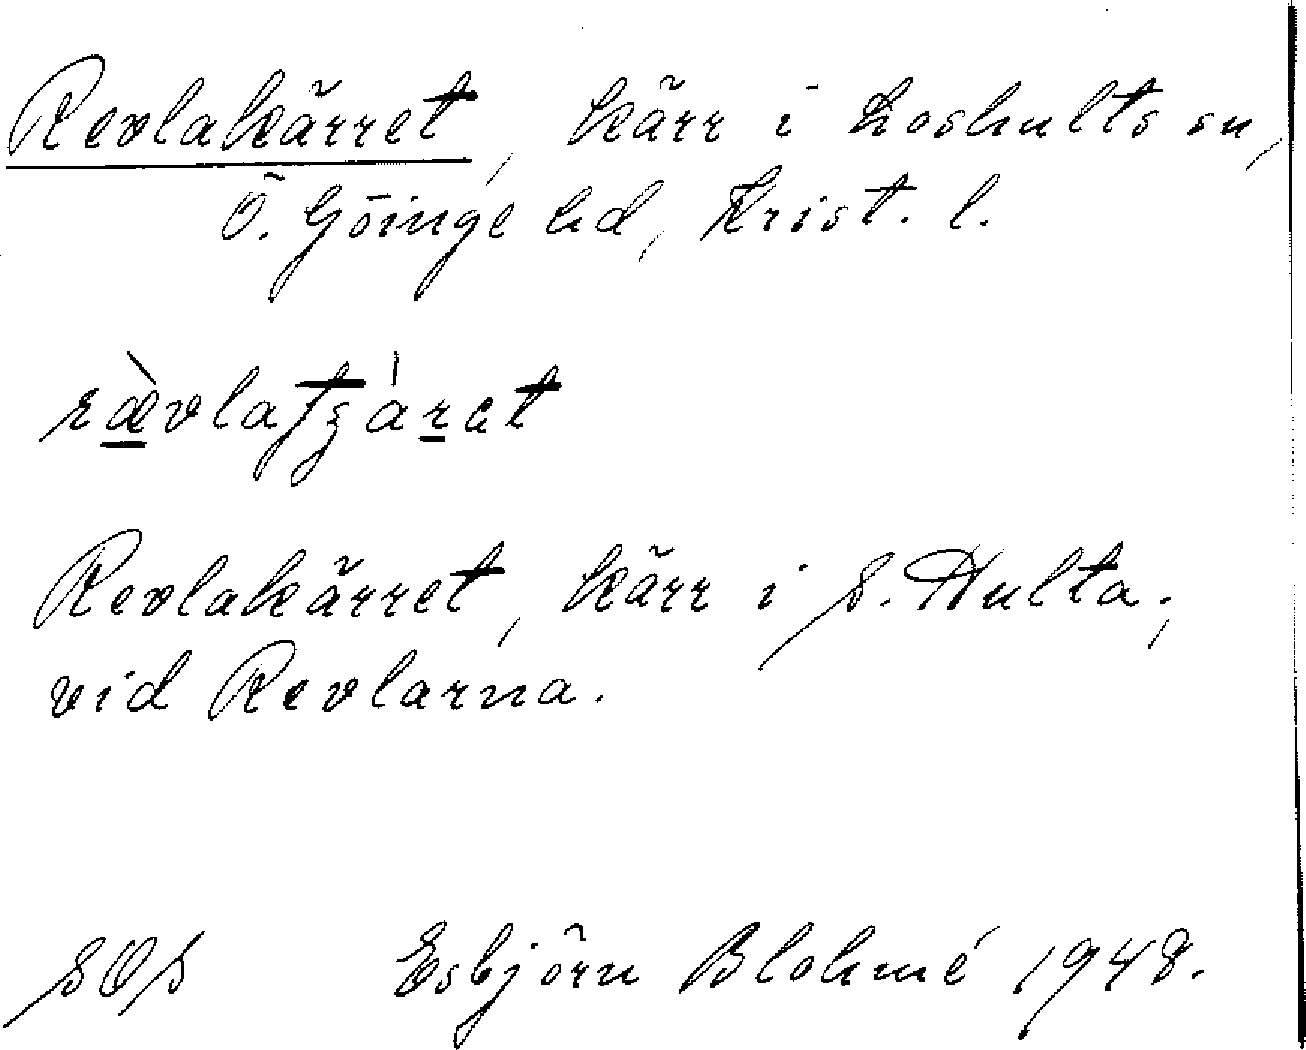 Revlakärret, kärr i Loshults sn,
Ö. Göinge hd, Krist. l.
Revlakärret, kärr i S. Hulta,
vid Revlarna.
SOS Esbjörn Blohmé 1948.